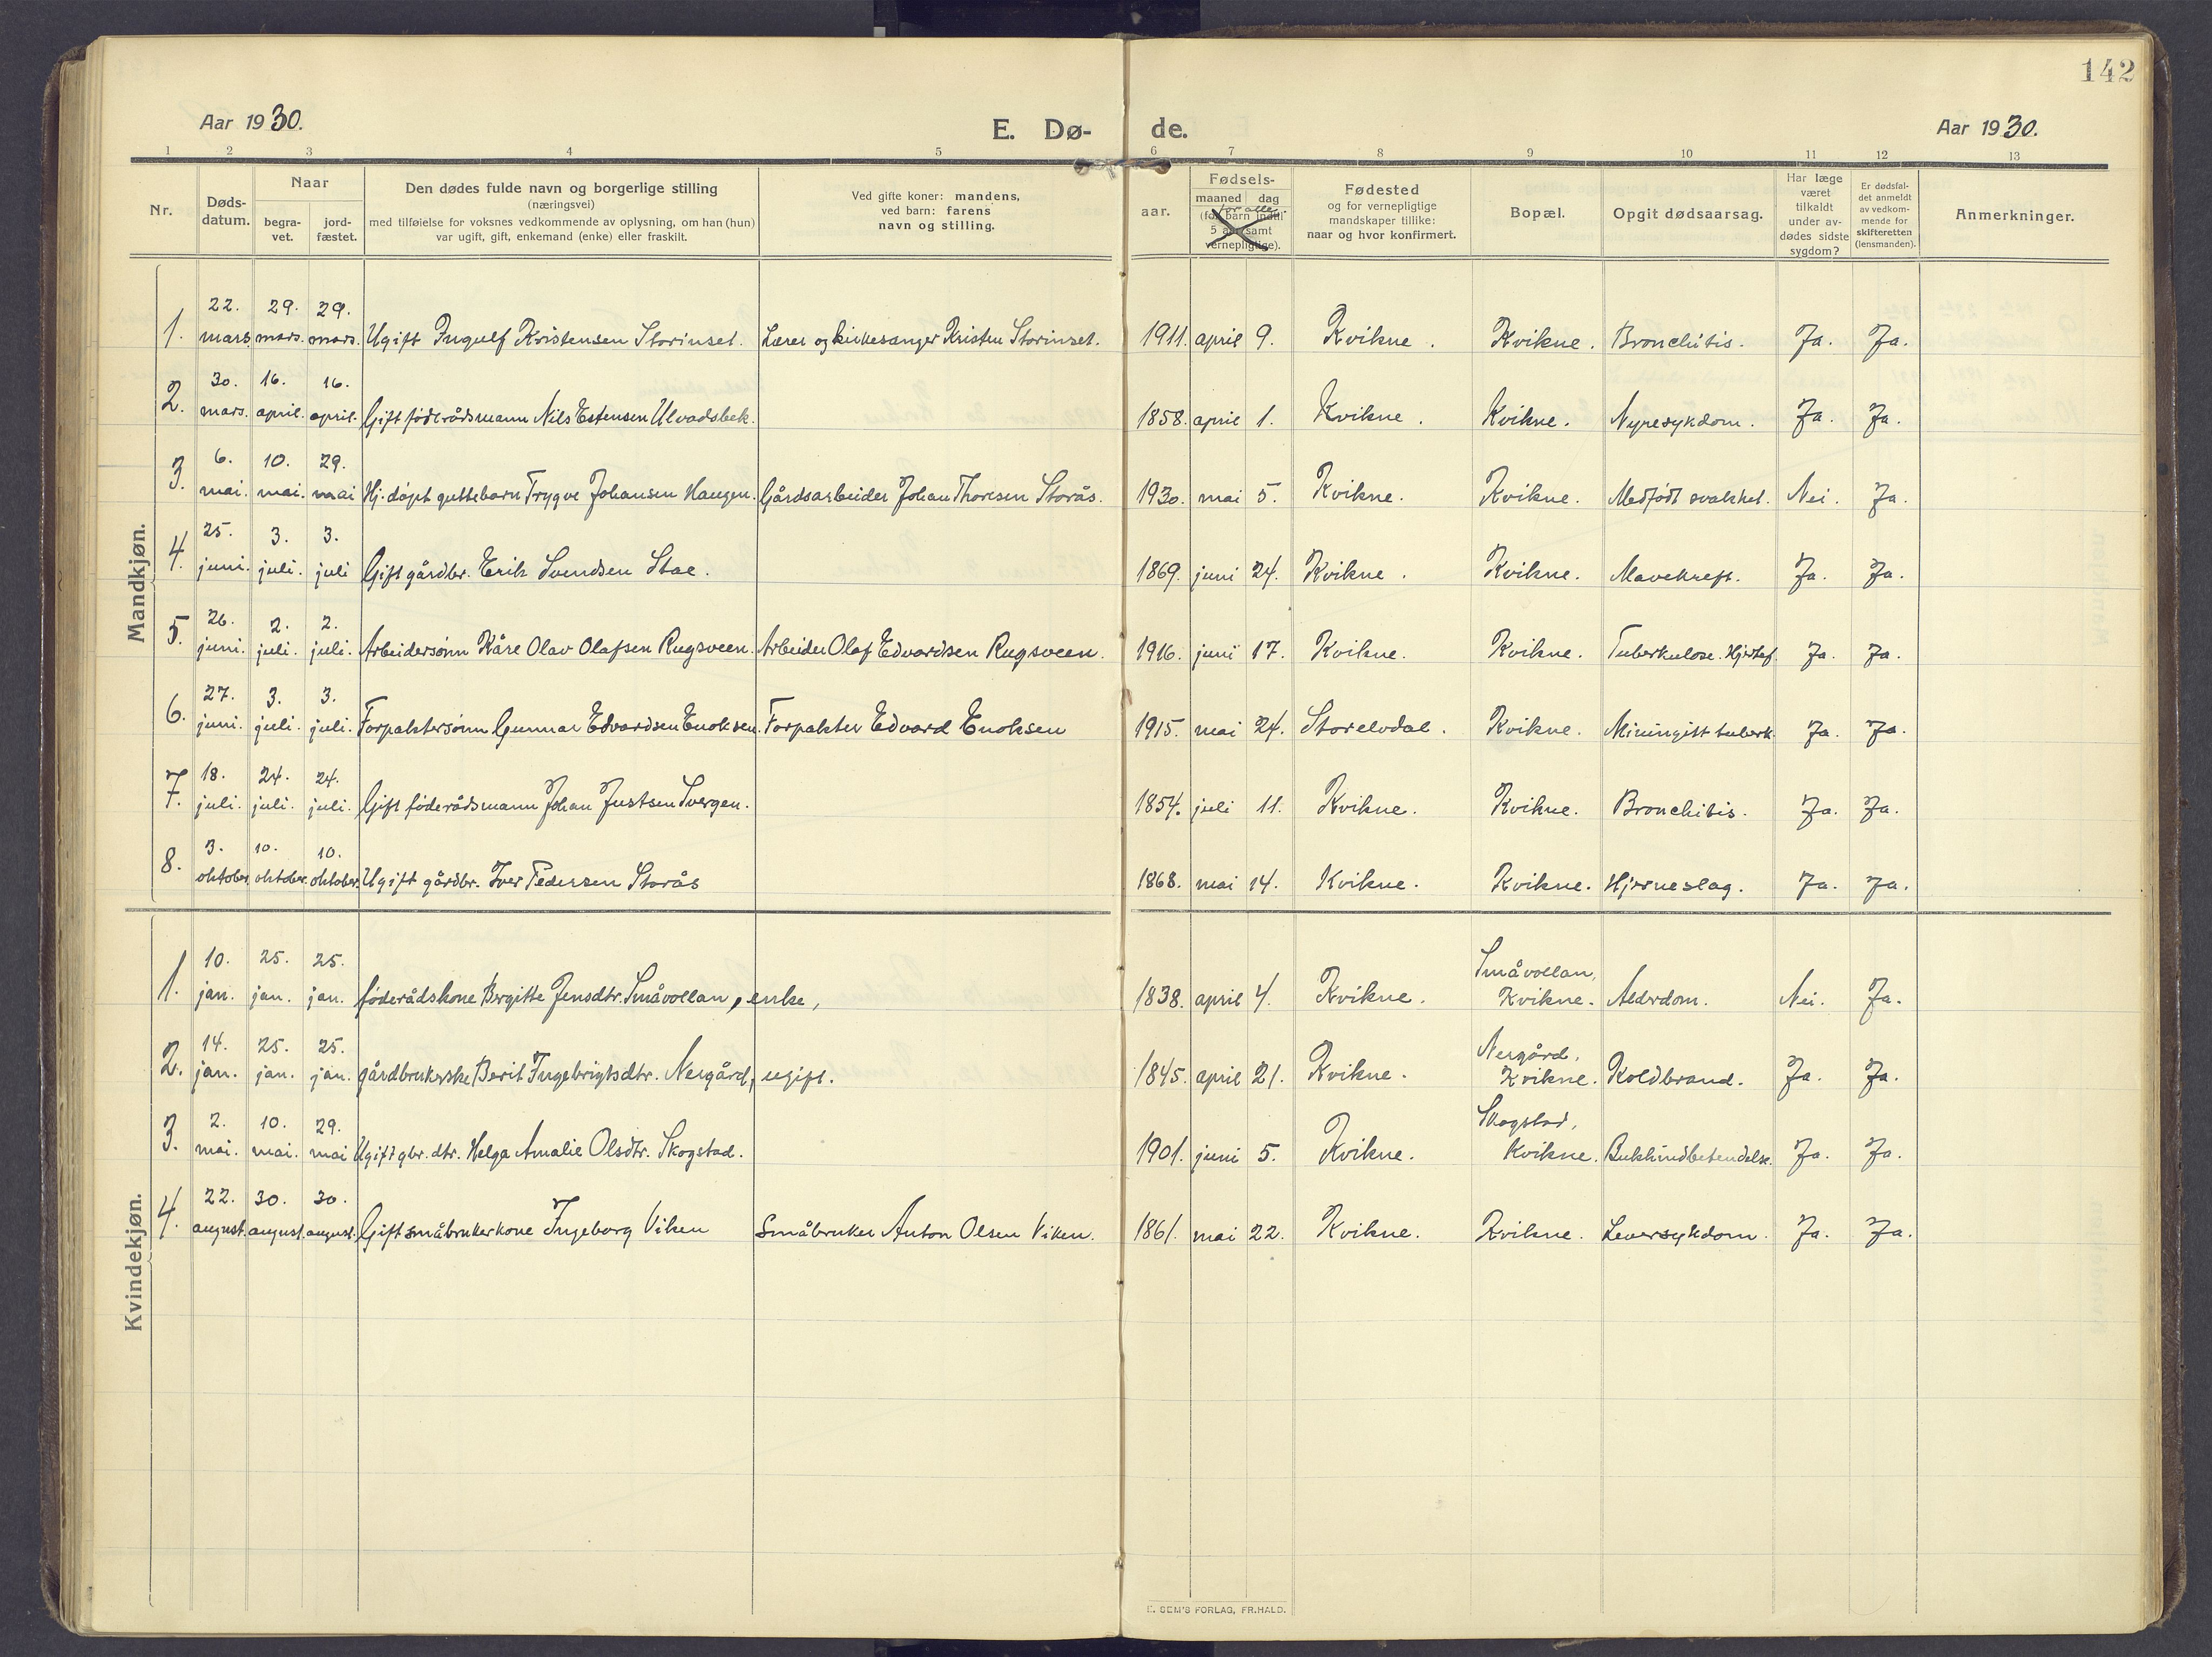 142
Aar 1930.
E. Dø-
de.
Aar 1930.
1 2 3 4 5 6 7 8 9 10 11 12 13
Nr.
Døds-
datum.
Naar
begra-
vet.
jord-
fæstet.
Den dødes fulde navn og borgerlige stilling
(næringsvei)
med tilføielse for voksnes vedkommende av oplysning, om han (hun)
var ugift, gift, enkemand (enke) eller fraskilt.
Ved gifte koner: mandens,
ved barn: farens
navn og stilling.
aar.
Fødsels-
maaned dag
for alle
(for barn indtil
5 aar samt
vernepligtige).
Fødested
og for vernepligtige
mandskaper tillike:
naar og hvor konfirmert.
Bopæl.
Opgit dødsaarsag.
Har læge
været
tilkaldt
under av-
dødes sidste
sygdom?
Er dødsfal-
det anmeldt
av vedkom-
mende for
skifteretten
(lensmanden).
Anmerkninger.
Mandkjøn.
22. 29. 29.
1. mars. mars. mars. Ugift Ingulf Kristensen Storinset. Lærer og kirkesanger Kristen Storinset. 1911. april 9. Kvikne. Kvikne. Bronchitis. Ja. Ja.
30. 16. 16.
2. mars. april. april. Gift føderådsmann Nils Estensen Ulvadsbek. 1858. april 1. Kvikne. Kvikne. Nyresykdom. Ja. Ja.
6. 10. 29.
3. mai. mai. mai Hj. døpt guttebarn Trygve Johansen Haugen. Gårdsarbeider Johan Thoresen Storås. 1930. mai 5. Kvikne. Kvikne. Medfødt svakhet. Nei. Ja.
25. 3. 3.
4. juni. juli. juli Gift gårdbr. Erik Svendsen Stae. 1869. juni 24. Kvikne. Kvikne. Mavekreft. Ja. Ja.
26. 2. 2.
5. juni. juli. juli. Arbeidersønn Kåre Olav Olafsen Rugsveen. Arbeider Olaf Edvardsen Rugsveen. 1916. juni 17. Kvikne. Kvikne. Tuberkulose. Ja. Ja.
27. 3. 3.
6. juni. juli. juli. Forpaktersønn Gunnar Edvardsen Enoksen. Forpakter Edvard Enoksen 1915. mai 24. Storelvdal. Kvikne. tuberk. Ja. Ja.
18. 24. 24.
7. juli. juli. juli. Gift føderådsmann Johan Justsen Svergen. 1854. juli 11. Kvikne. Kvikne. Bronchitis. Ja. Ja.
3. 10. 10.
8. oktober. oktober. oktober. Ugift gårdbr. Iver Pedersen Storås 1868. mai 14. Kvikne. Kvikne. Hjerneslag. Ja. Ja.
Kvindekjøn.
10. 25. 25. Småvollan,
1. jan. jan. jan. føderådskone Birgitte Jensdtr. Småvollan, enke, 1838. april 4. Kvikne. Kvikne. Alderdom. Nei. Ja.
14. 25. 25. Nergård,
2. jan. jan. jan. gårdbrukerske Berit Ingebrigtsdtr. Nergård, ugift. 1845. april 21. Kvikne. Kvikne. Koldbrand. Ja. Ja.
2. 10. 29. Skogstad,
3. mai. mai. mai Ugift gbr. dtr. Helga Amalie Olsdtr. Skogstad. 1901. juni 5. Kvikne. Kvikne. Bukhindbetendelse. Ja. Ja.
22. 30. 30.
4. august. august. august. Gift småbrukerkone Ingeborg Viken Småbruker Anton Olsen Viken. 1861. mai 22. Kvikne. Kvikne. Leversykdom. Ja. Ja.
E. SEM'S FORLAG, FR.HALD.